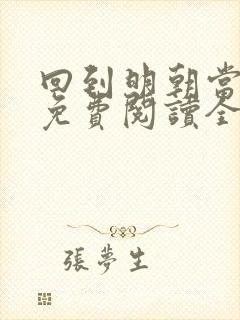 回到明朝當
免費閱讀全
張夢生